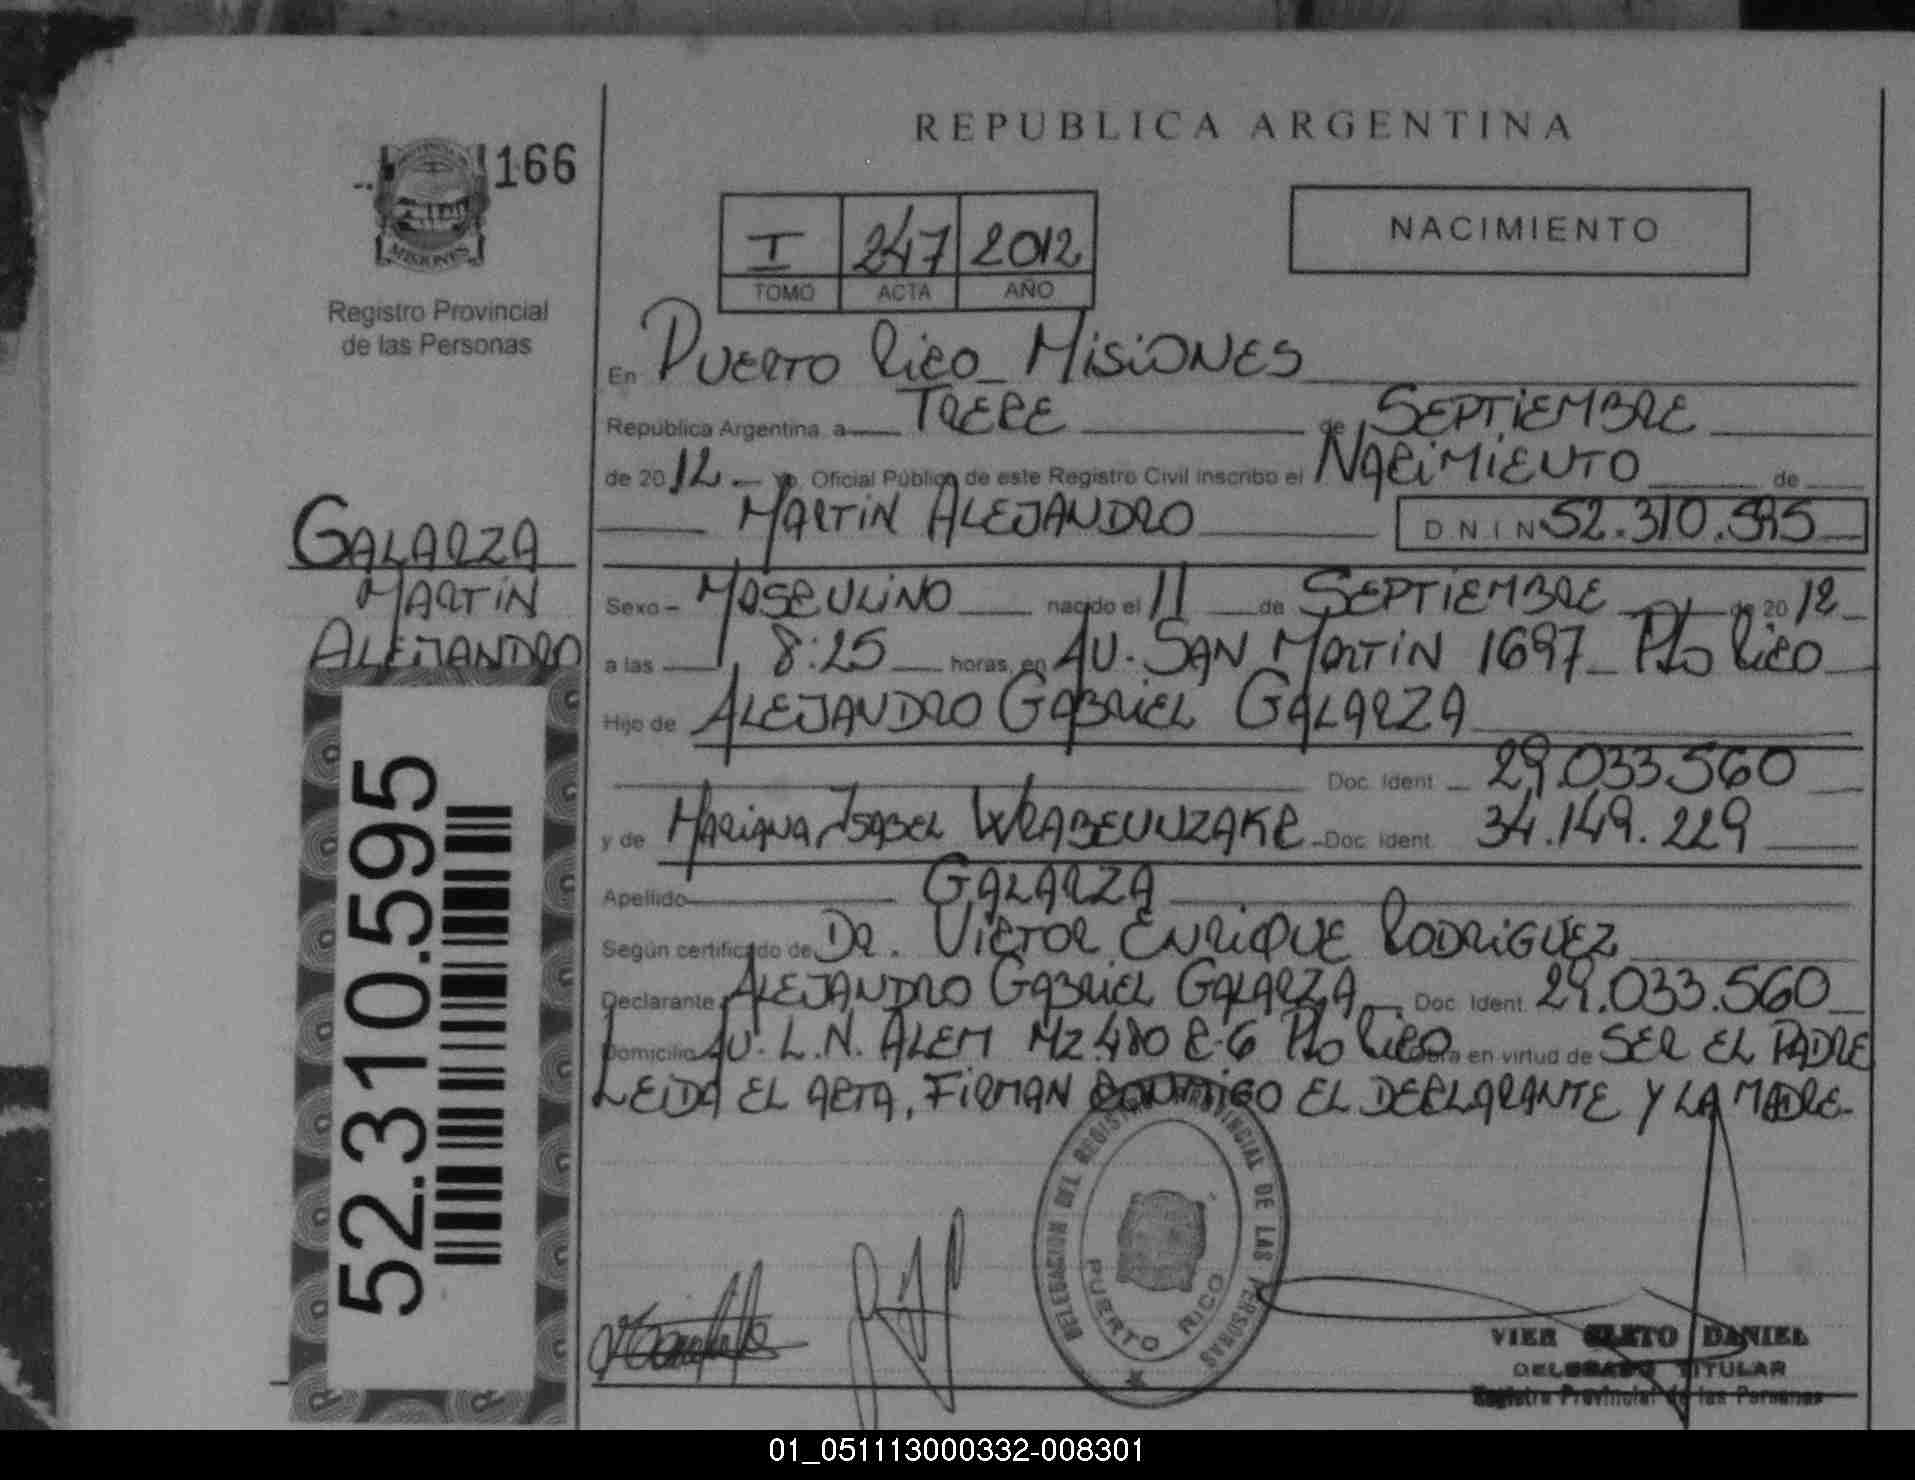 REPUBLICA ARGENTINA
166
MISIONES
Registro Provincial
de las Personas
I 247 2012
TOMO ACTA AÑO
NACIMIENTO
En PUERTO RICO - MISIONES
República Argentina, a TRECE de SEPTIEMBRE
de 2012 - yo, Oficial Público de este Registro Civil inscribo el NACIMIENTO de
MARTIN ALEJANDRO D N I N 52.310.595
GALARZA
MARTIN
ALEJANDRO
Sexo - MASCULINO nacido el 11 de SEPTIEMBRE de 2012
a las 8:25 horas, en AV. SAN MARTIN 1697 - Pto RICO
Hijo de ALEJANDRO GABRIEL GALARZA
Doc. Ident. 29.033.560
y de MARIANA ISABEL Doc. Ident. 34.149.229
Apellido GALARZA
Según certificado de DR. VICTOR ENRIQUE RODRIGUEZ
Declarante ALEJANDRO GABRIEL GALARZA Doc. Ident. 29.033.560
Domicilio AV. L.N. ALEM MZ 480 C-6 Pto RICO Obra en virtud de SER EL PADRE
LEIDA EL ACTA, FIRMAN CONMIGO EL DECLARANTE Y LA MADRE-
52.310.595
DELEGACION DEL REGISTRO PROVINCIAL DE LAS PERSONAS
PUERTO RICO
VIER CLETO DANIEL
DELEGADO TITULAR
Registro Provincial de las Personas
01_051113000332-008301